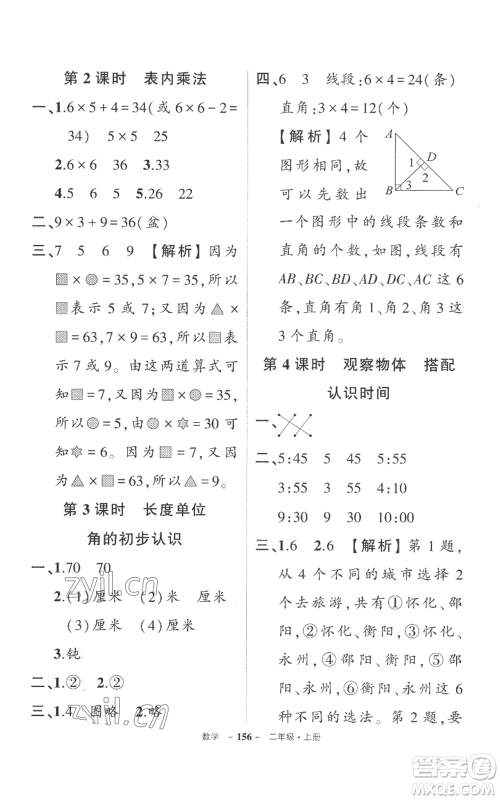 第2课时 表内乘法
一、1.6×5+4=34(或6×6-2=
34) 5×5 25
2.6×6 36 3.33
4.5 6 5.26 22
二、9×3+9=36(盆)
三、7 5 6 9 【解析】因为
▨×◍=35,5×7=35,所以
▨表示5或7。因为△×
▨=63,7×9=63,所以▨
表示7。由这两道算式可
知▨=7,△=9。因为▨×
◍=35,5×7=35,所以
◍=5。因为◍×✡=30,所
以✡=6。
第3课时 长度单位
角的初步认识
一、1.70 70
2.(1)厘米 (2)米 厘米
(3)厘米 (4)厘米
3.钝
二、1.② 2.②
三、1.4 图略 2.略
四、6 3 线段:6×4=24(条)
直角:3×4=12(个)
【解析】4个
图形相同,故
可以先数出
A
D
1
2
3
B
C
一个图形中的线段条数
和直角的个数,如图,线段有
AB、BC、BD、AD、DC、AC这
6条;直角有角1、角2、角
3这3个直角。
第4课时 观察物体 搭配
认识时间
一、
二、5:45 5:50 5:55
3:55 4:00 4:10
9:30 9:00 9:05
三、1.6 2.6 【解析】第1题,
从4个不同的城市选择2
个去旅游,有①怀化、邵
阳,②怀化、衡阳,③怀化、
永州,④邵阳、衡阳,⑤邵
阳、永州,⑥衡阳、永州这
6种不同的选法。第2题,
数学 - 156 - 二年级·上册
zyjl.cn
zyjl.cn
作业帮